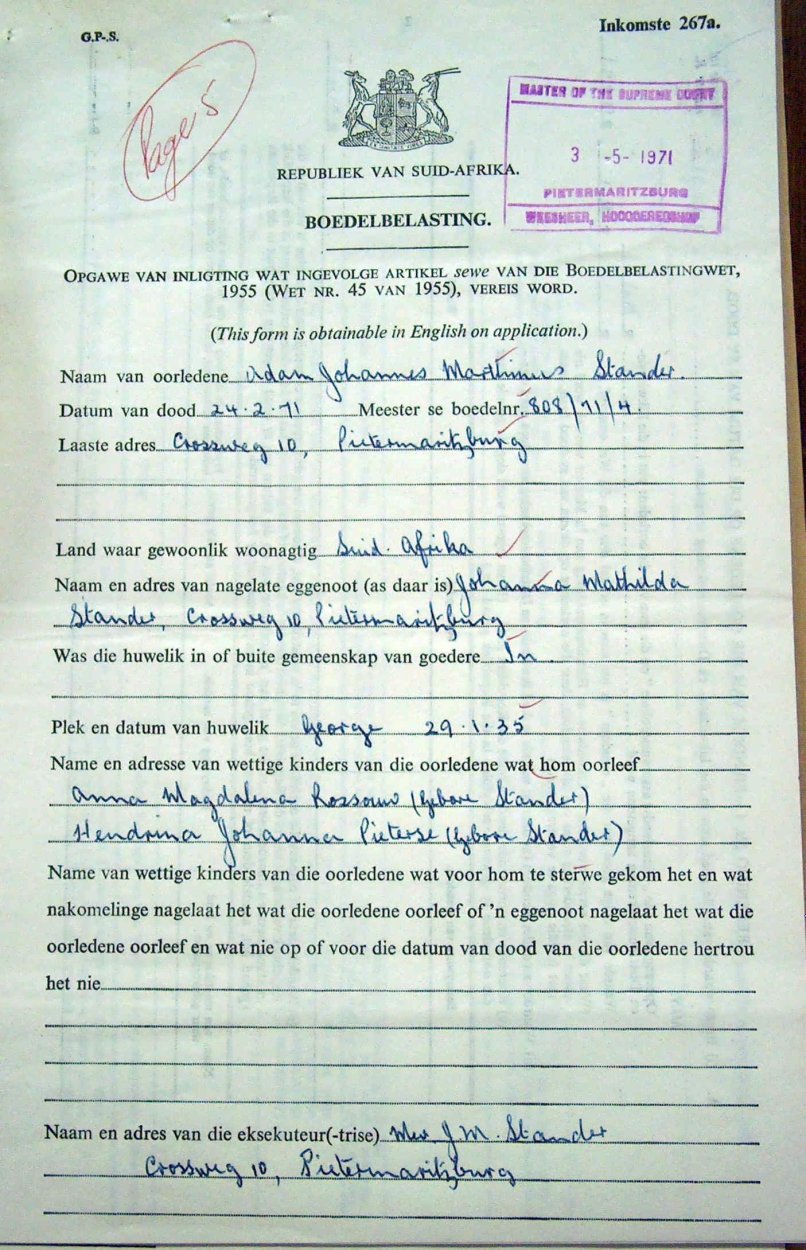 G.P.-S.
Inkomste 267a.
Page 5
MASTER OF THE SUPREME COURT
3 -5- 1971
PIETERMARITZBURG
WEESHEER, HOOGGEREGSHOF
REPUBLIEK VAN SUID-AFRIKA.
BOEDELBELASTING.
OPGAWE VAN INLIGTING WAT INGEVOLGE ARTIKEL sewe VAN DIE BOEDELBELASTINGWET,
1955 (WET NR. 45 VAN 1955), VEREIS WORD.
(This form is obtainable in English on application.)
Naam van oorledene Adam Johannes Marthinus Stander.
Datum van dood 24.2.71 Meester se boedelnr. 808/71/4.
Laaste adres Crossweg 10, Pietermaritzburg
Land waar gewoonlik woonagtig Suid-Afrika
Naam en adres van nagelate eggenoot (as daar is) Johanna Mathilda
Stander, Crossweg 10, Pietermaritzburg
Was die huwelik in of buite gemeenskap van goedere In
Plek en datum van huwelik George 29.1.35
Name en adresse van wettige kinders van die oorledene wat hom oorleef
Anna Magdalena Rossouw (gebore Stander)
Hendrina Johanna Pieterse (gebore Stander)
Name van wettige kinders van die oorledene wat voor hom te sterwe gekom het en wat
nakomelinge nagelaat het wat die oorledene oorleef of 'n eggenoot nagelaat het wat die
oorledene oorleef en wat nie op of voor die datum van dood van die oorledene hertrou
het nie
Naam en adres van die eksekuteur(-trise) Mev J.M. Stander
Crossweg 10, Pietermaritzburg